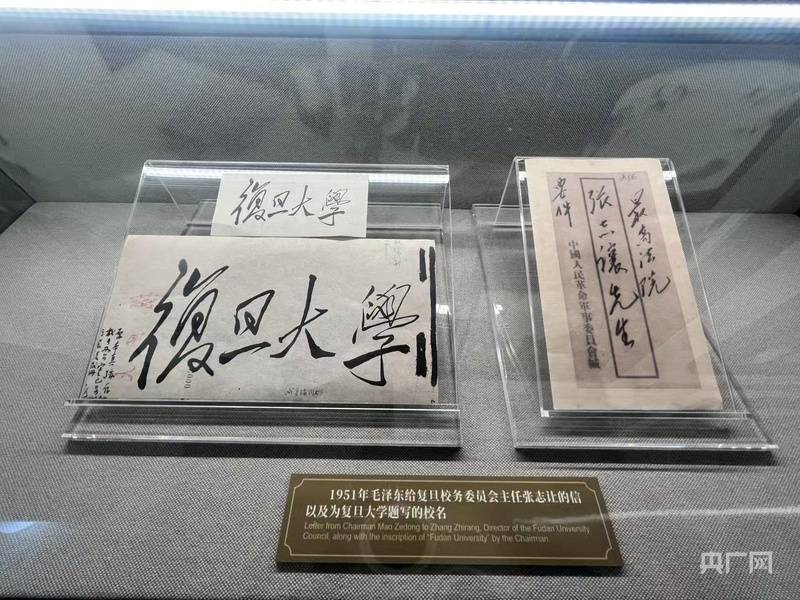 復旦大學
復旦大學
最高法院
張志讓先生
要件
中國人民革命軍事委員會緘
1951年毛泽东给复旦校务委员会主任张志让的信
以及为复旦大学题写的校名
Letter from Chairman Mao Zedong to Zhang Zhirang, Director of the Fudan University
Council, along with the inscription of "Fudan University" by the Chairman.
央广网